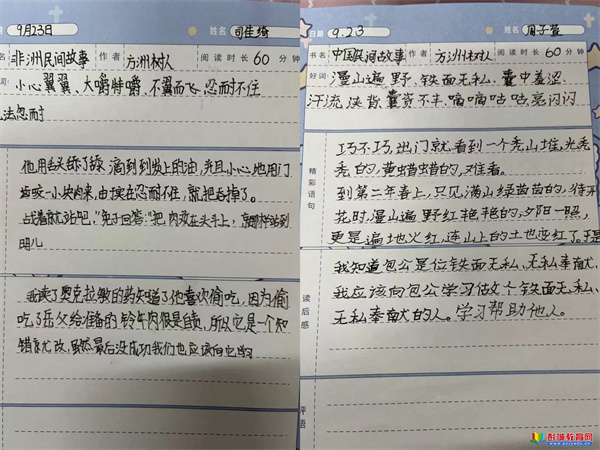 9月23日 姓名 司佳绮
非洲民间故事 作者 方洲树人 阅读时长 60 分钟
词: 小心翼翼、大嚼特嚼、不翼而飞、忍耐不住
法忍耐
他用舌头舔了舔 滴到到身上的油,并且小心地用门
齿咬一小块肉来,由于实在忍耐不住,就把它吃掉了。
"站着就站吧,"兔子回答:"把肉放在头手上,
明儿
我读了奥克拉敏的药知道了他喜欢偷吃,因为偷
吃了岳父给准备的 羚羊肉很是自责,所以它是一个知
错就改,虽然最后没成功我们也应该向它学习
日期 9.23 姓名 周子萱
书名 中国民间故事 作者 方洲树人 阅读时长 60 分钟
好词: 漫山遍野、铁面无私、囊中羞涩、
汗流浃背、囊资不丰、嘀嘀咕咕、亮闪闪
巧不巧,出门就看到一个秃山堆,光秃
秃的,黄蜡蜡的,难看。
精彩语句
到第二年春上,只见满山绿茵茵的,待开
花时,漫山遍野红艳艳的,夕阳一照,
更是遍地火红,连山上的土也变红了。于是
我知道包公是位铁面无私、无私奉献,
读后感
我应该向包公学习做个铁面无私、
无私奉献的人。学习帮助他人。
评语
彭城教育网